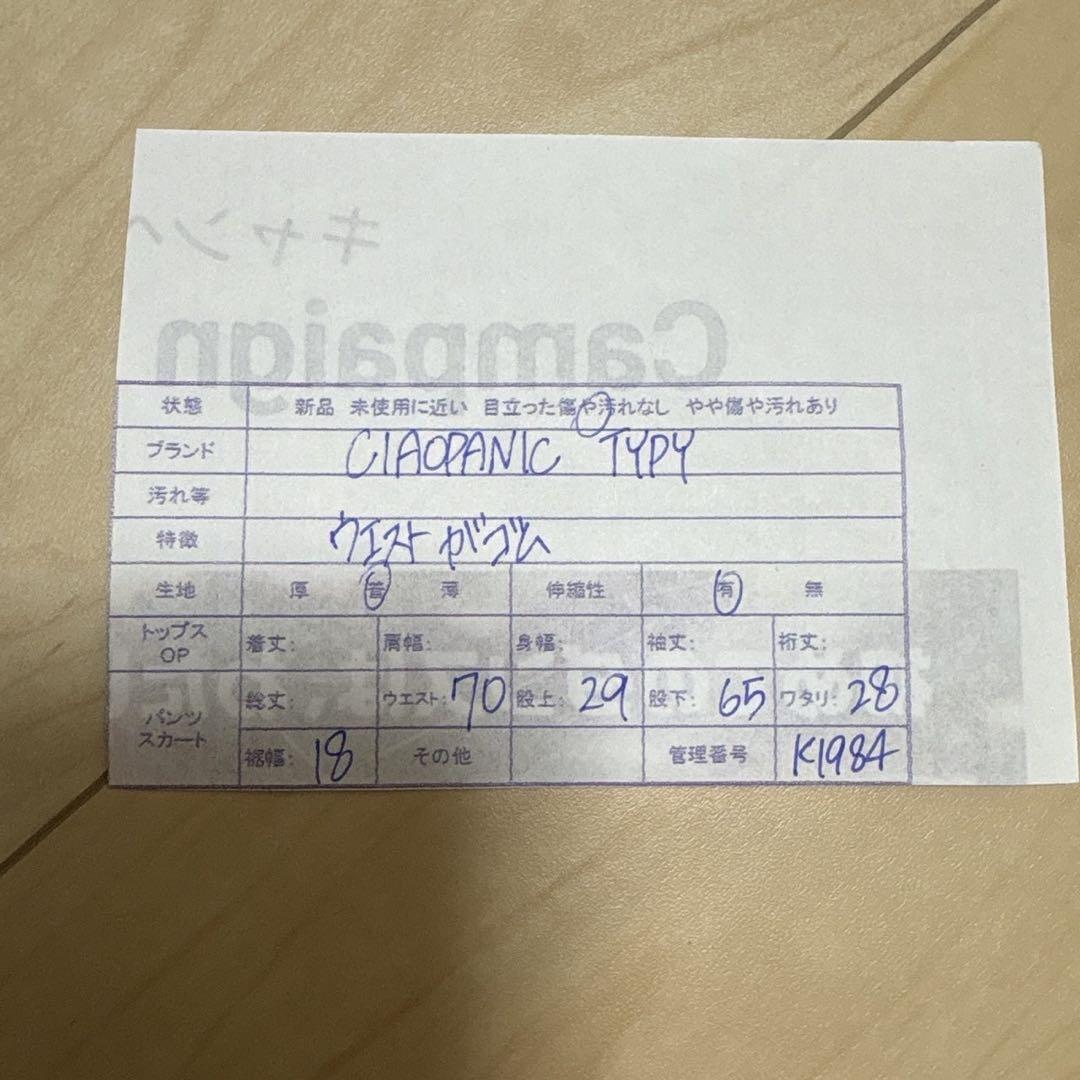 キャンペ
Campaign
状態 新品 未使用に近い 目立った傷や汚れなし やや傷や汚れあり
ブランド CIAOPANIC TYPY
汚れ等
特徴 ウエストがゴム
生地 厚 普 薄 伸縮性 有 無
トップス OP 着丈: 肩幅: 身幅: 袖丈: 裄丈:
パンツ スカート 総丈: ウエスト: 70 股上: 29 股下: 65 ワタリ: 28
裾幅: 18 その他 管理番号 K1984